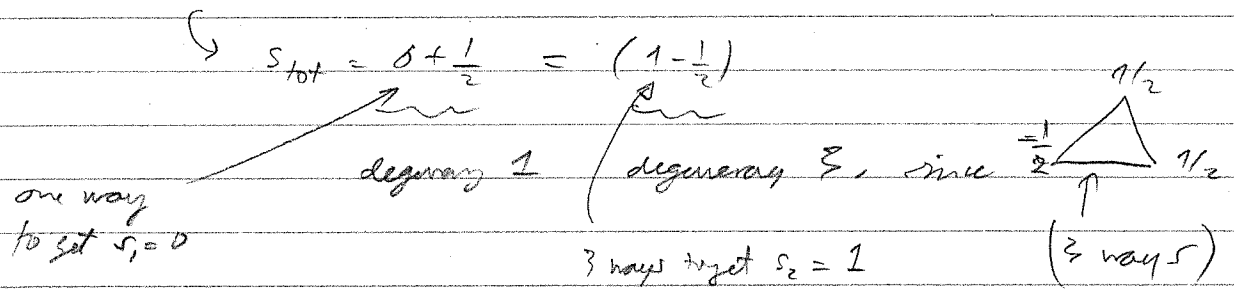 S_tot = 0 + 1/2 = (1 - 1/2)
1/2
degeneracy 1 degeneracy 3, since -1/2 1/2
one way
to get s_1 = 0
3 ways to get s_2 = 1
(3 ways)